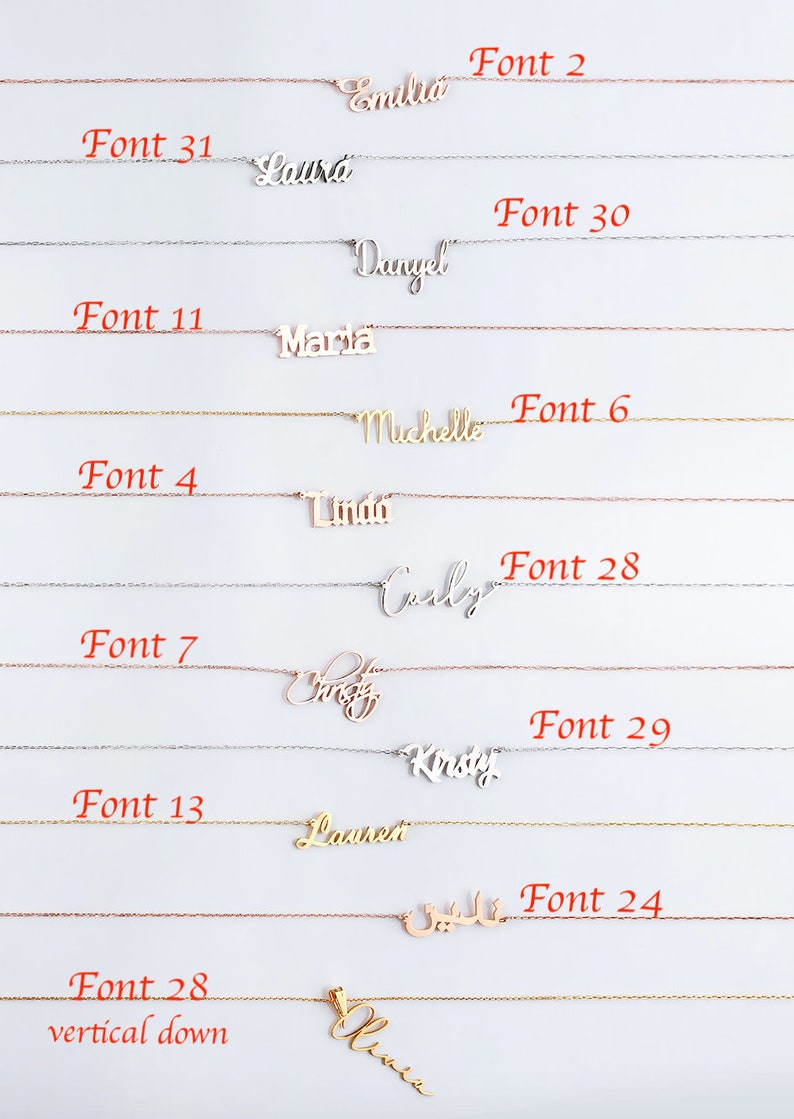 Font 2
Emilia
Font 31
Laura
Font 30
Danyel
Font 11
Maria
Font 6
Michelle
Font 4
Linda
Font 28
Carly
Font 7
Christy
Font 29
Kirsty
Font 13
Lauren
Font 24
Font 28
vertical down
Olivia